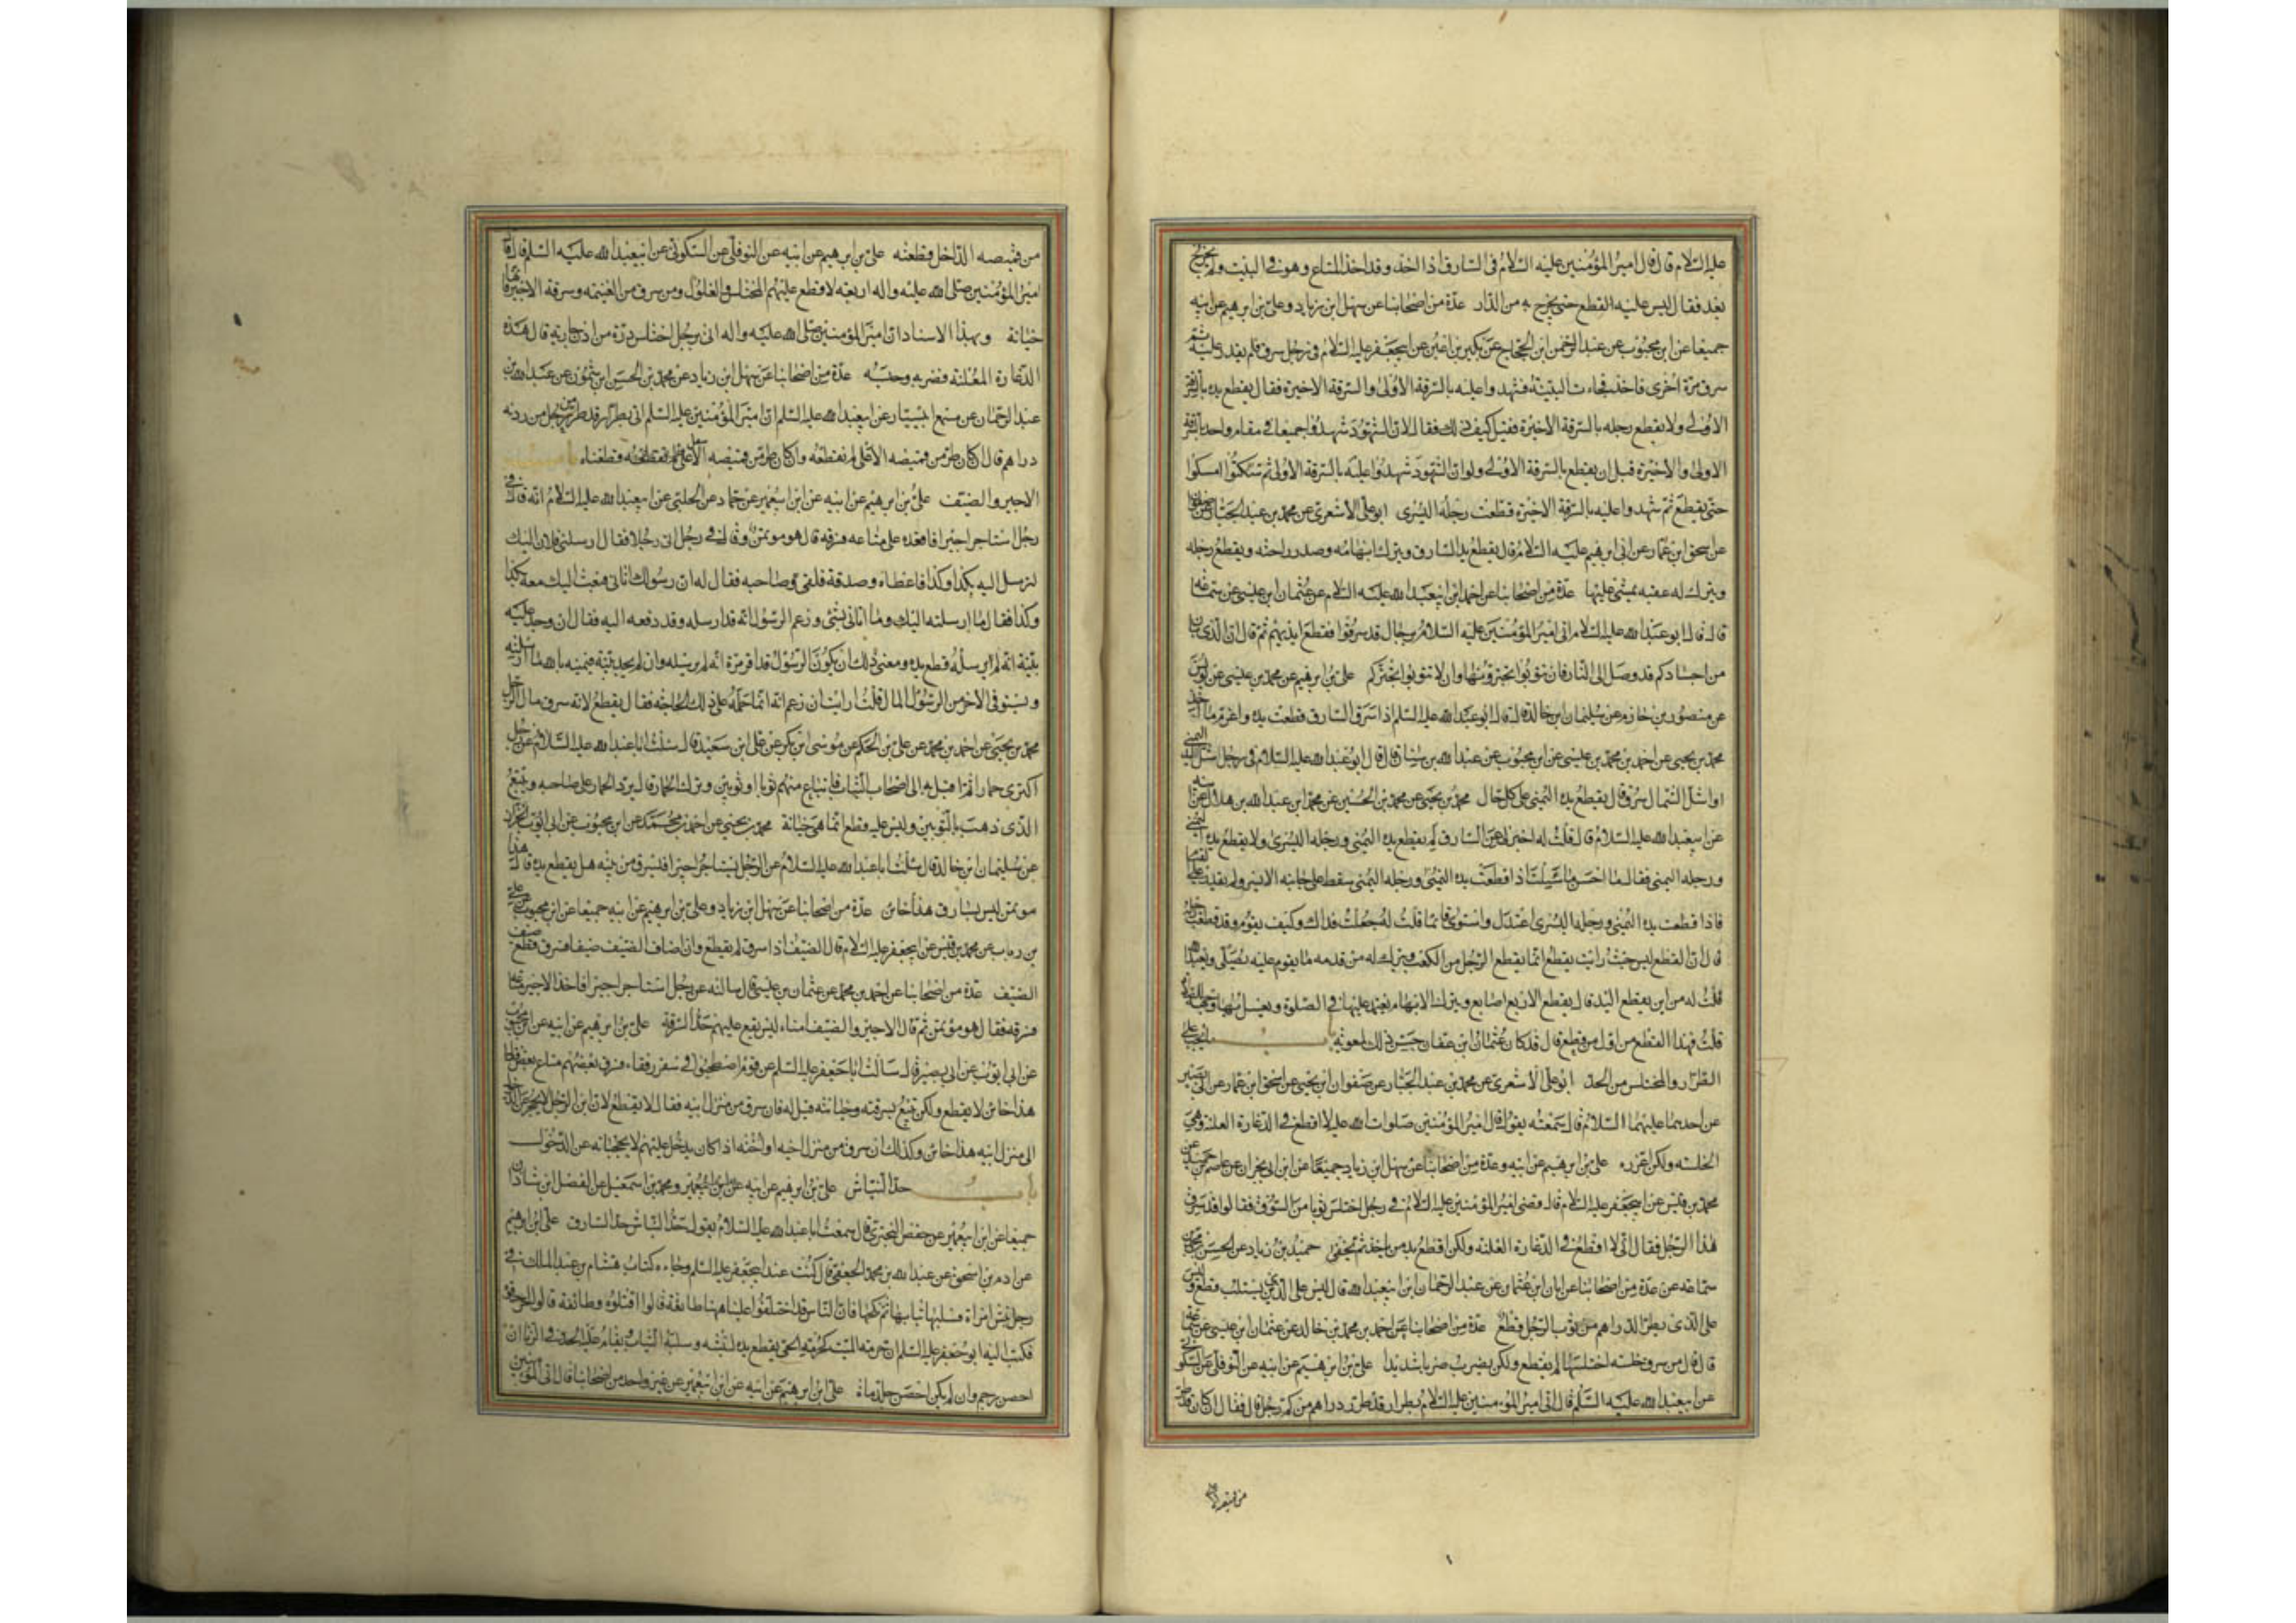 عليه السلام قال قال امير المؤمنين عليه السلام فى السارق اذا اخذ وقد اخذ المتاع وهو فى البيت ولم يخرج
بعد فقال ليس عليه القطع حتى يخرج به من الدار عدة من اصحابنا عن سهل ابن زياد وعلى بن ابرهيم عن ابيه
جميعا عن ابن محبوب عن عبد الرحمن ابن الحجاج عن بكير بن اعين عن ابيجعفر عليه السلام فى رجل سرق فلم يقدر عليه ثم
سرق مرة اخرى فاخذ فجاءت البينة فشهدوا عليه بالسرقة الاولى والسرقة الاخيرة فقال يقطع يده بالسرقة
الاولى ولا يقطع رجله بالسرقة الاخيرة فقيل كيف ذلك فقال لان الشهود شهدوا جميعا فى مقام واحد بالسرقة
الاولى والاخيرة قبل ان يقطع بالسرقة الاولى ولو ان الشهود شهدوا عليه بالسرقة الاولى ثم سكتوا امسكوا
حتى يقطع ثم شهدوا عليه بالسرقة الاخيرة قطعت رجله اليسرى ابو على الاشعرى عن محمد بن عبد الجبار عن صفوان
عن اسحق ابن عمار عن ابى ابرهيم عليه السلام قال يقطع يد السارق ويترك ابهامه وصدر راحته ويقطع رجله
ويترك له عقبه يمشى عليها عدة من اصحابنا عن احمد ابن ابيعبد الله عليه السلام عن عثمان ابن عيسى عن سماعة
قال قال ابو عبد الله عليه السلام اتى امير المؤمنين عليه السلام برجال قد سرقوا فقطع ايديهم ثم قال ان الذى بان
من اجسادكم قد وصل الى النار فان تتوبوا تجترونها وان لا تتوبوا تجتركم على بن ابرهيم عن محمد بن عيسى عن يونس
عن منصور بن حازم عن سليمان ابن خالد قال قال ابو عبد الله عليه السلم اذا سرق السارق قطعت يده واغرم ما اخذ
محمد بن يحيى عن احمد بن محمد بن عيسى عن ابن محبوب عن عبد الله بن سنان قال قال ابو عبد الله عليه السلام فى رجل اشل اليد اليمنى
او اشل الشمال سرق قال يقطع يده اليمنى على كل حال محمد بن يحيى عن محمد بن الحسين عن محمد ابن عبد الله بن هلال عن ابيه
عن ابيعبد الله عليه السلام قال قلت له اخبرنى عن السارق لم يقطع يده اليمنى ورجله اليسرى ولا يقطع يده اليمنى
ورجله اليمنى فقال ما احسن ما سئلت اذا قطعت يده اليمنى ورجله اليمنى سقط على جانبه الايسر ولم يقدر على القيام
فاذا قطعت يده اليمنى ورجله اليسرى اعتدل واستوى قائما قلت له جعلت فداك وكيف يقوم وقد قطعت رجله
قال ان القطع ليس حيث رايت يقطع انما يقطع الرجل من الكعب ويترك له من قدمه ما يقوم عليه يصلى ويعبد الله
قلت له من اين يقطع اليد قال يقطع الاربع اصابع ويترك الابهام يعتمد عليها فى الصلوة ويغسل بها وجهه للصلوة
قلت فهذا القطع من اول من قطع قال قد كان عثمان ابن عفان حسن ذلك لمعوية باب ما يجب على
الطرار والمختلس من الحد ابو على الاشعرى عن محمد بن عبد الجبار عن صفوان ابن يحيى عن اسحق ابن عمار عن ابى بصير
عن احدهما عليهما السلام قال سمعته يقول قال امير المؤمنين صلوات الله عليه لا اقطع فى الدغارة المعلنة وهى
الخلسه ولكن اعزره على بن ابرهيم عن ابيه وعدة من اصحابنا عن سهل ابن زياد جميعا عن ابن ابى نجران عن عاصم بن حميد عن
محمد بن قيس عن ابيجعفر عليه السلام قال قضى امير المؤمنين عليه السلام فى رجل اختلس ثوبا من السوق فقالوا قد سرق
هذا الرجل فقال انى لا اقطع فى الدغارة المعلنة ولكن اقطع يد من ياخذ ثم يخفى حميد بن زياد عن الحسن بن محمد بن
سماعه عن عدة من اصحابنا عن ابان ابن عثمان عن عبد الرحمان ابن ابيعبد الله قال ليس على الذى يستلب قطع وليس
على الذى يطر الدراهم من ثوب الرجل قطع عدة من اصحابنا عن احمد بن محمد بن خالد عن عثمان ابن عيسى عن سماعة
قال قال من سرق خلسه اختلسها لم يقطع ولكن يضرب ضربا شديدا على بن ابرهيم عن ابيه عن النوفلى عن السكونى
عن ابيعبد الله عليه السلم قال اتى امير المؤمنين عليه السلام بطرار قد طر دراهم من كم رجل قال فقال ان كان قد طر
من قميصه الاعلى
من قميصه الداخل قطعته على بن ابرهيم عن ابيه عن النوفلى عن السكونى عن ابيعبد الله عليه السلم قال قال
امير المؤمنين صلى الله عليه واله اربعة لا قطع عليهم المختلس والغلول ومن سرق من الغنيمه وسرقة الاجير فانها
خيانة وبهذا الاسناد ان امير المؤمنين صلى الله عليه واله اتى برجل اختلس درة من اذن جارية قال هذه
الدغارة المعلنة فضربه وحبسه عدة من اصحابنا عن سهل ابن زياد عن محمد بن الحسن ابن شمون عن عبد الله بن
عبد الرحمان عن مسمع ابى سيار عن ابيعبد الله عليه السلم ان امير المؤمنين عليه السلم اتى بطرار قد طر من رجل من ردنه
دراهم قال ان كان طر من قميصه الاعلى لم نقطعه وان كان طر من قميصه الاسفل قطعناه باب
الاجير والضيف على بن ابرهيم عن ابيه عن ابن ابيعمير عن حماد عن الحلبى عن ابيعبد الله عليه السلام انه قال فى
رجل استاجر اجيرا فاقعده على متاعه فسرقه قال هو موتمن وقال فى رجل اتى رجلا فقال ارسلنى فلان اليك
لترسل اليه بكذا وكذا فاعطاه وصدقة فلقى صاحبه فقال له ان رسولك اتانى فبعثت اليك معه كذا
وكذا فقال ما ارسلته اليك وما اتانى بشئ وزعم الرسول انه قد ارسله وقد دفعه اليه فقال ان وجد عليه
بينة انه لم يرسله قطع يده ومعنى ذلك ان يكون الرسول قد اقر مرة انه لم يرسله وان لم يجد بينة فيمينه بالله ما ارسلته
ويستوفى الاخر من الرسول المال قلت ارايت ان زعم انه انما حمله على ذلك الحاجة فقال يقطع لانه سرق مال الرجل
محمد بن يحيى عن احمد بن محمد عن على بن الحكم عن موسى ابن بكر عن على ابن سعيد قال سئلت ابا عبد الله عليه السلام عن رجل
اكترى حمارا ثم اقبل به الى اصحاب الثياب فابتاع منهم ثوبا او ثوبين وترك الحمار قال يرد الحمار على صاحبه ويتبع
الذى ذهب بالثوبين وليس عليه قطع انما هى خيانة محمد بن يحيى عن احمد بن محمد عن ابن محبوب عن ابى ايوب الخزاز
عن سليمان ابن خالد قال سئلت ابا عبد الله عليه السلام عن الرجل يستاجر اجيرا فيسرق من بيته هل يقطع يده قال هذا
موتمن ليس بسارق هذا خائن عدة من اصحابنا عن سهل ابن زياد وعلى بن ابرهيم عن ابيه جميعا عن ابن محبوب عن على
بن رئاب عن محمد بن قيس عن ابيجعفر عليه السلام قال الضيف اذا سرق لم يقطع وان اضاف الضيف ضيفا فسرق قطع ضيف
الضيف عدة من اصحابنا عن احمد بن محمد عن عثمان بن عيسى قال سالته عن رجل استاجر اجيرا فاخذ الاجير متاعه
فسرقه فقال هو موتمن ثم قال الاجير والضيف امناء ليس يقع عليهم حد السرقة على بن ابرهيم عن ابيه عن ابن محبوب
عن ابى ايوب عن ابى بصير قال سالت ابا جعفر عليه السلم عن قوم اصطحبوا فى سفر رفقاء فسرق بعضهم متاع بعض فقال
هذا خائن لا يقطع ولكن يتبع بسرقته وخيانته قيل له فان سرق من منزل ابيه فقال لا يقطع لان ابن الرجل لا يحجب عن الدخول
الى منزل ابيه هذا خائن وكذلك ان سرق من منزل اخيه او اخته اذا كان يدخل عليهم لا يحجبانه عن الدخول
باب حد النباش على بن ابرهيم عن ابيه عن ابن ابيعمير ومحمد بن اسمعيل عن الفضل ابن شاذان
جميعا عن ابن ابيعمير عن حفص البخترى قال سمعت ابا عبد الله عليه السلام يقول حد النباش حد السارق على ابن ابرهيم
عن ادم بن اسحق عن عبد الله بن محمد الجعفى قال كنت عند ابيجعفر عليه السلم وجاءه كتاب هشام بن عبد الملك فى
رجل نبش امراة فسلبها ثيابها ثم نكحها فان الناس قد اختلفوا علينا ههنا طائفة قالوا اقتلوه وطائفة قالوا احرقوه
فكتب اليه ابو جعفر عليه السلم ان حرمة الميت كحرمة الحى يقطع يده لنبشه وسلبه الثياب ويقام عليه الحد فى الزنا ان
احصن رجم وان لم يكن احصن جلد مائة على ابن ابرهيم عن ابيه عن ابن ابيعمير عن غير واحد من اصحابنا قال اتى امير المؤمنين